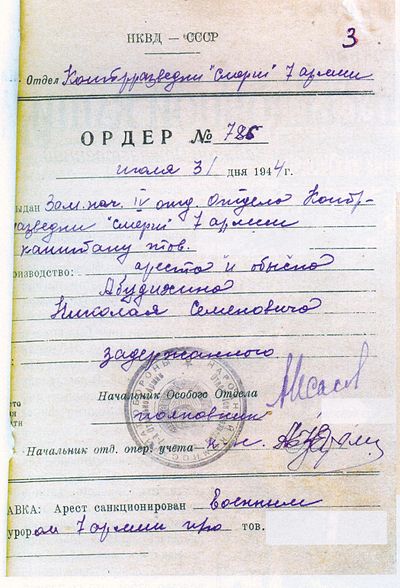 НКВД — СССР
3
Отдел Контрразведки "Смерш" 7 армии
ОРДЕР № 785
июля 31 дня 1944 г.
ыдан Зам. нач. IV отд. Отдела Контр-
разведки "Смерш" 7 армии
капитану тов.
роизводство: ареста и обыска
Абудихина
Николая Семеновича
задержанного
Начальник Особого Отдела
полковник
Начальник отд. опер. учета
АВКА: Арест санкционирован военным
курором 7 армии тов.